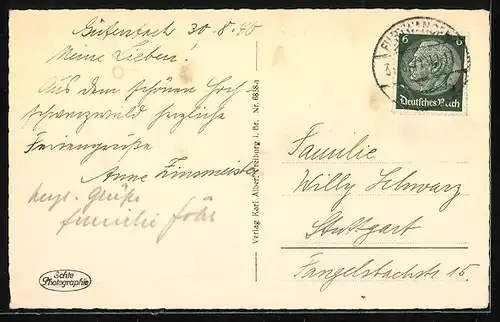 Gütenbach 30.8.40
Meine Lieben!
Aus dem schönen Hoch-
schwarzwald herzliche
Feriengrüße
Anne Zinsmeister
herzl. Grüße
familie Föhr
Echte
Photographie
Verlag Karl Alber, Freiburg i. Br. Nr. 6858 a
FURTWANGEN
6 6
Deutsches Reich
Familie
Willy Schwarz
Stuttgart
Fangelsbachstr 15.